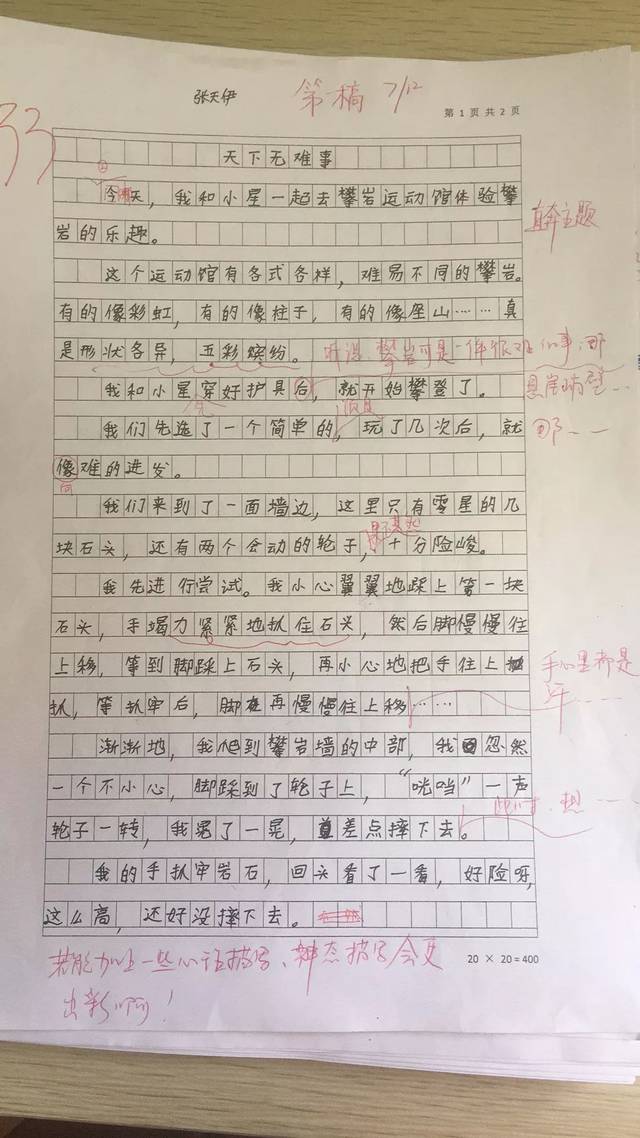 张天伊 第一稿 7/12
第 1 页 共 2 页
33
天下无难事
今天，我和小星一起去攀岩运动馆体验攀
岩的乐趣。
直奔主题
这个运动馆有各式各样，难易不同的攀岩。
有的像彩虹，有的像柱子，有的像座山……真
是形状各异，五彩缤纷。听说，攀岩可是一件很难的事，那
悬崖峭壁……
我和小星穿好护具后，就开始攀登了。
我们先选了一个简单的，玩了几次后，就
像难的进发。
向
我们来到了一面墙边，这里只有零星的几
块石头，还有两个会动的轮子，十分险峻。
我先进行尝试。我小心翼翼地踩上第一块
石头，手竭力紧紧地扒住石头，然后脚慢慢往
上移，等到脚踩上石头，再小心地把手往上
扒，等扒牢后，脚再慢慢往上移……
手心里都是
汗……
渐渐地，我爬到攀岩墙的中部，我忽然
一个不小心，脚踩到了轮子上，“咣当”一声
此时，想……
轮子一转，我晃了一晃，差点摔下去。
我的手扒牢岩石，回头看了一看，好险呀，
这么高，还好没摔下去。
20 × 20 = 400
若能加上一些心理描写、神态描写会更
出彩啊！